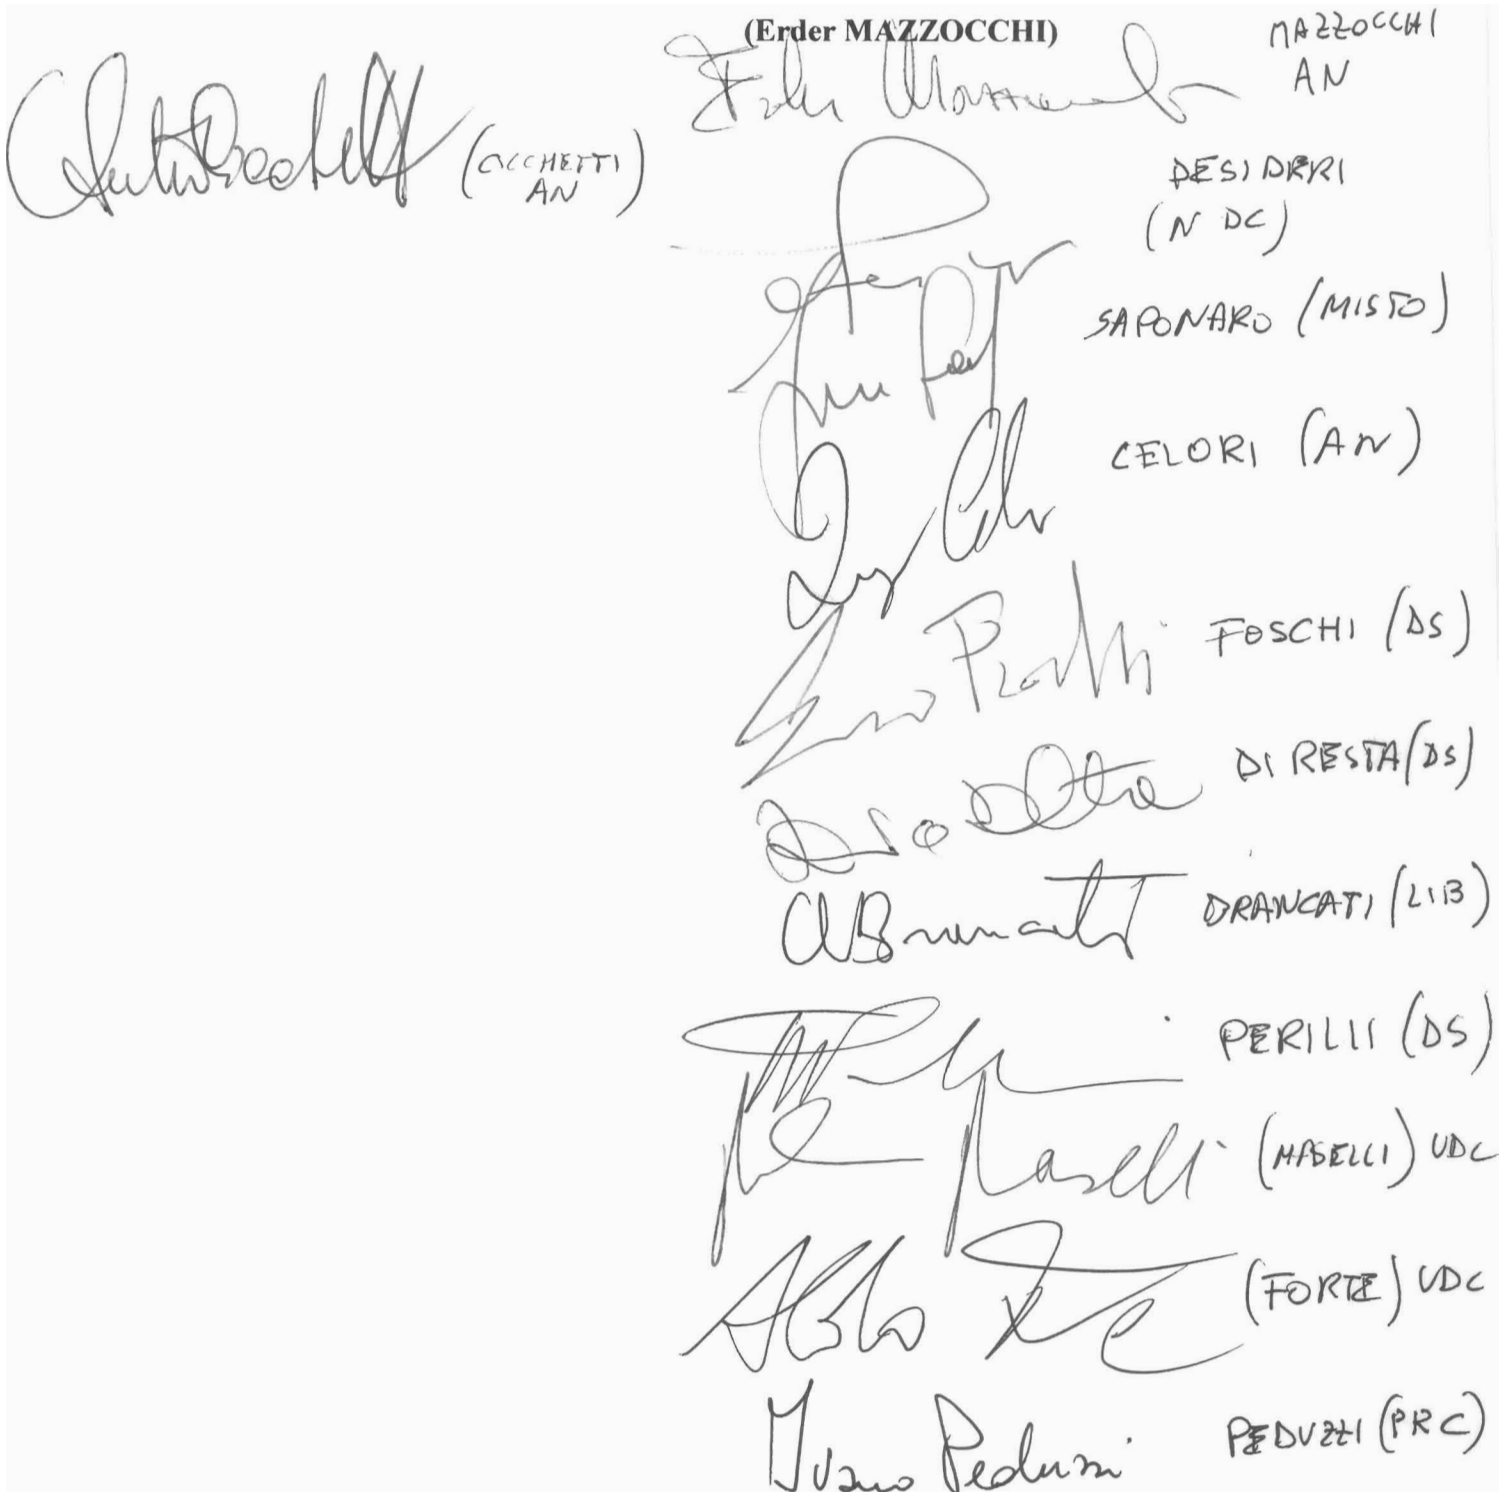 (Erder MAZZOCCHI)
MAZZOCCHI
AN
(CICCHETTI
AN)
DESIDERI
(N DC)
SAPONARO (MISTO)
CELORI (AN)
FOSCHI (DS)
DI RESTA (DS)
BRANCATI (LIB)
PERILLI (DS)
Maselli (MASELLI) UDC
Aldo (FORTE) UDC
Ivano Peduzzi PEDUZZI (PRC)